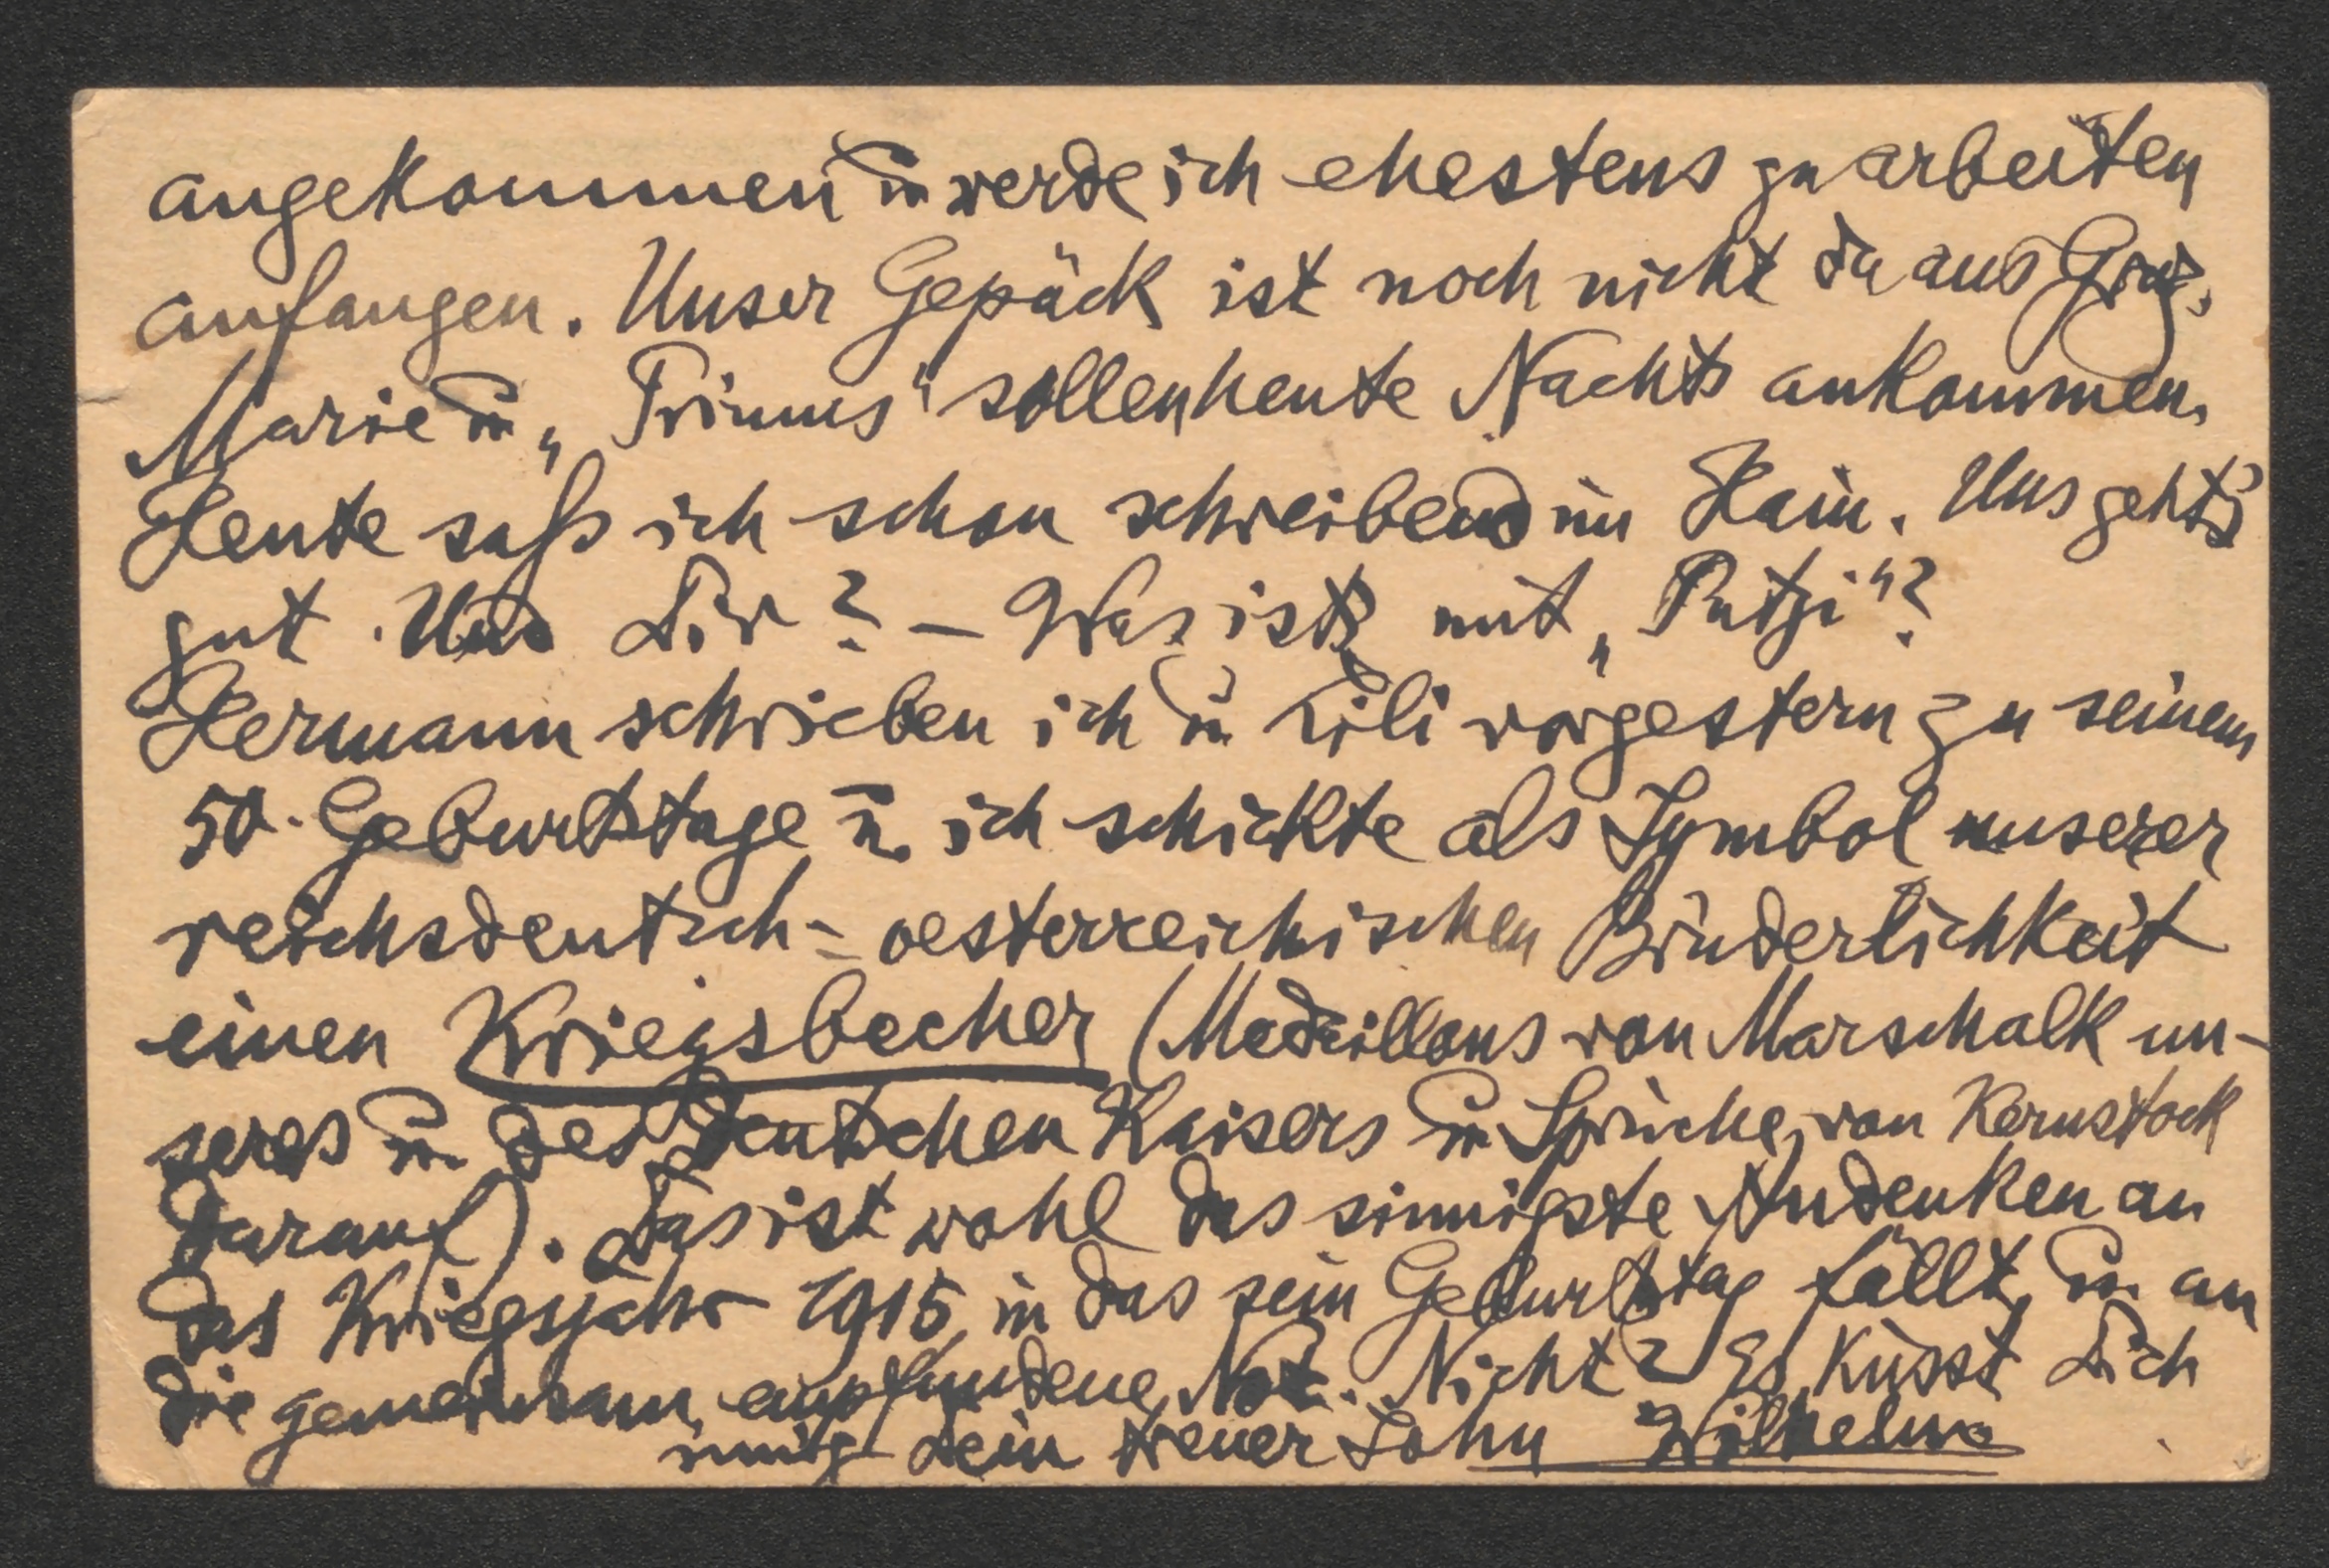 angekommen u. werde ich ehestens zu arbeiten
anfangen. Unser Gepäck ist noch nicht da aus Graz.
Marie u. „Primus“ sollen heute Nachts ankommen.
Heute saß ich schon schreibend im Hain. Uns geht's
gut. Und Dir? – Was ist's mit „Putzi“?
Hermann schrieben ich u. Lili vorgestern zu seinem
50. Geburtstage u. ich schickte als Symbol unserer
reichsdeutsch-oesterreichischen Brüderlichkeit
einen Kriegsbecher (Medaillons von Marschalk un-
seres u. des deutschen Kaisers u. Sprüche von Kernstock
darauf). Das ist wohl das sinnigste Andenken an
das Kriegsjahr 1915, in das sein Geburtstag fällt, u. an
die gemeinsam empfundene Not. Nicht? Es küsst Dich
innig Dein treuer Sohn Wilhelm